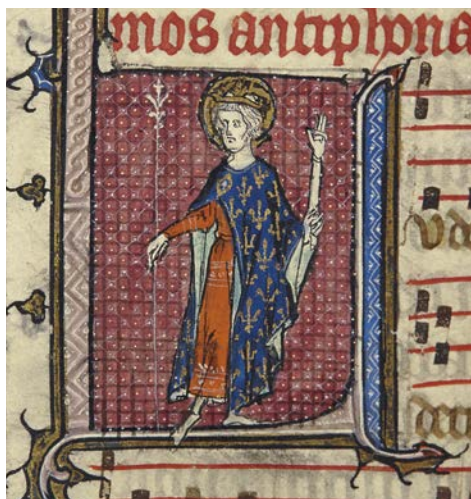 mos antiphona
vd